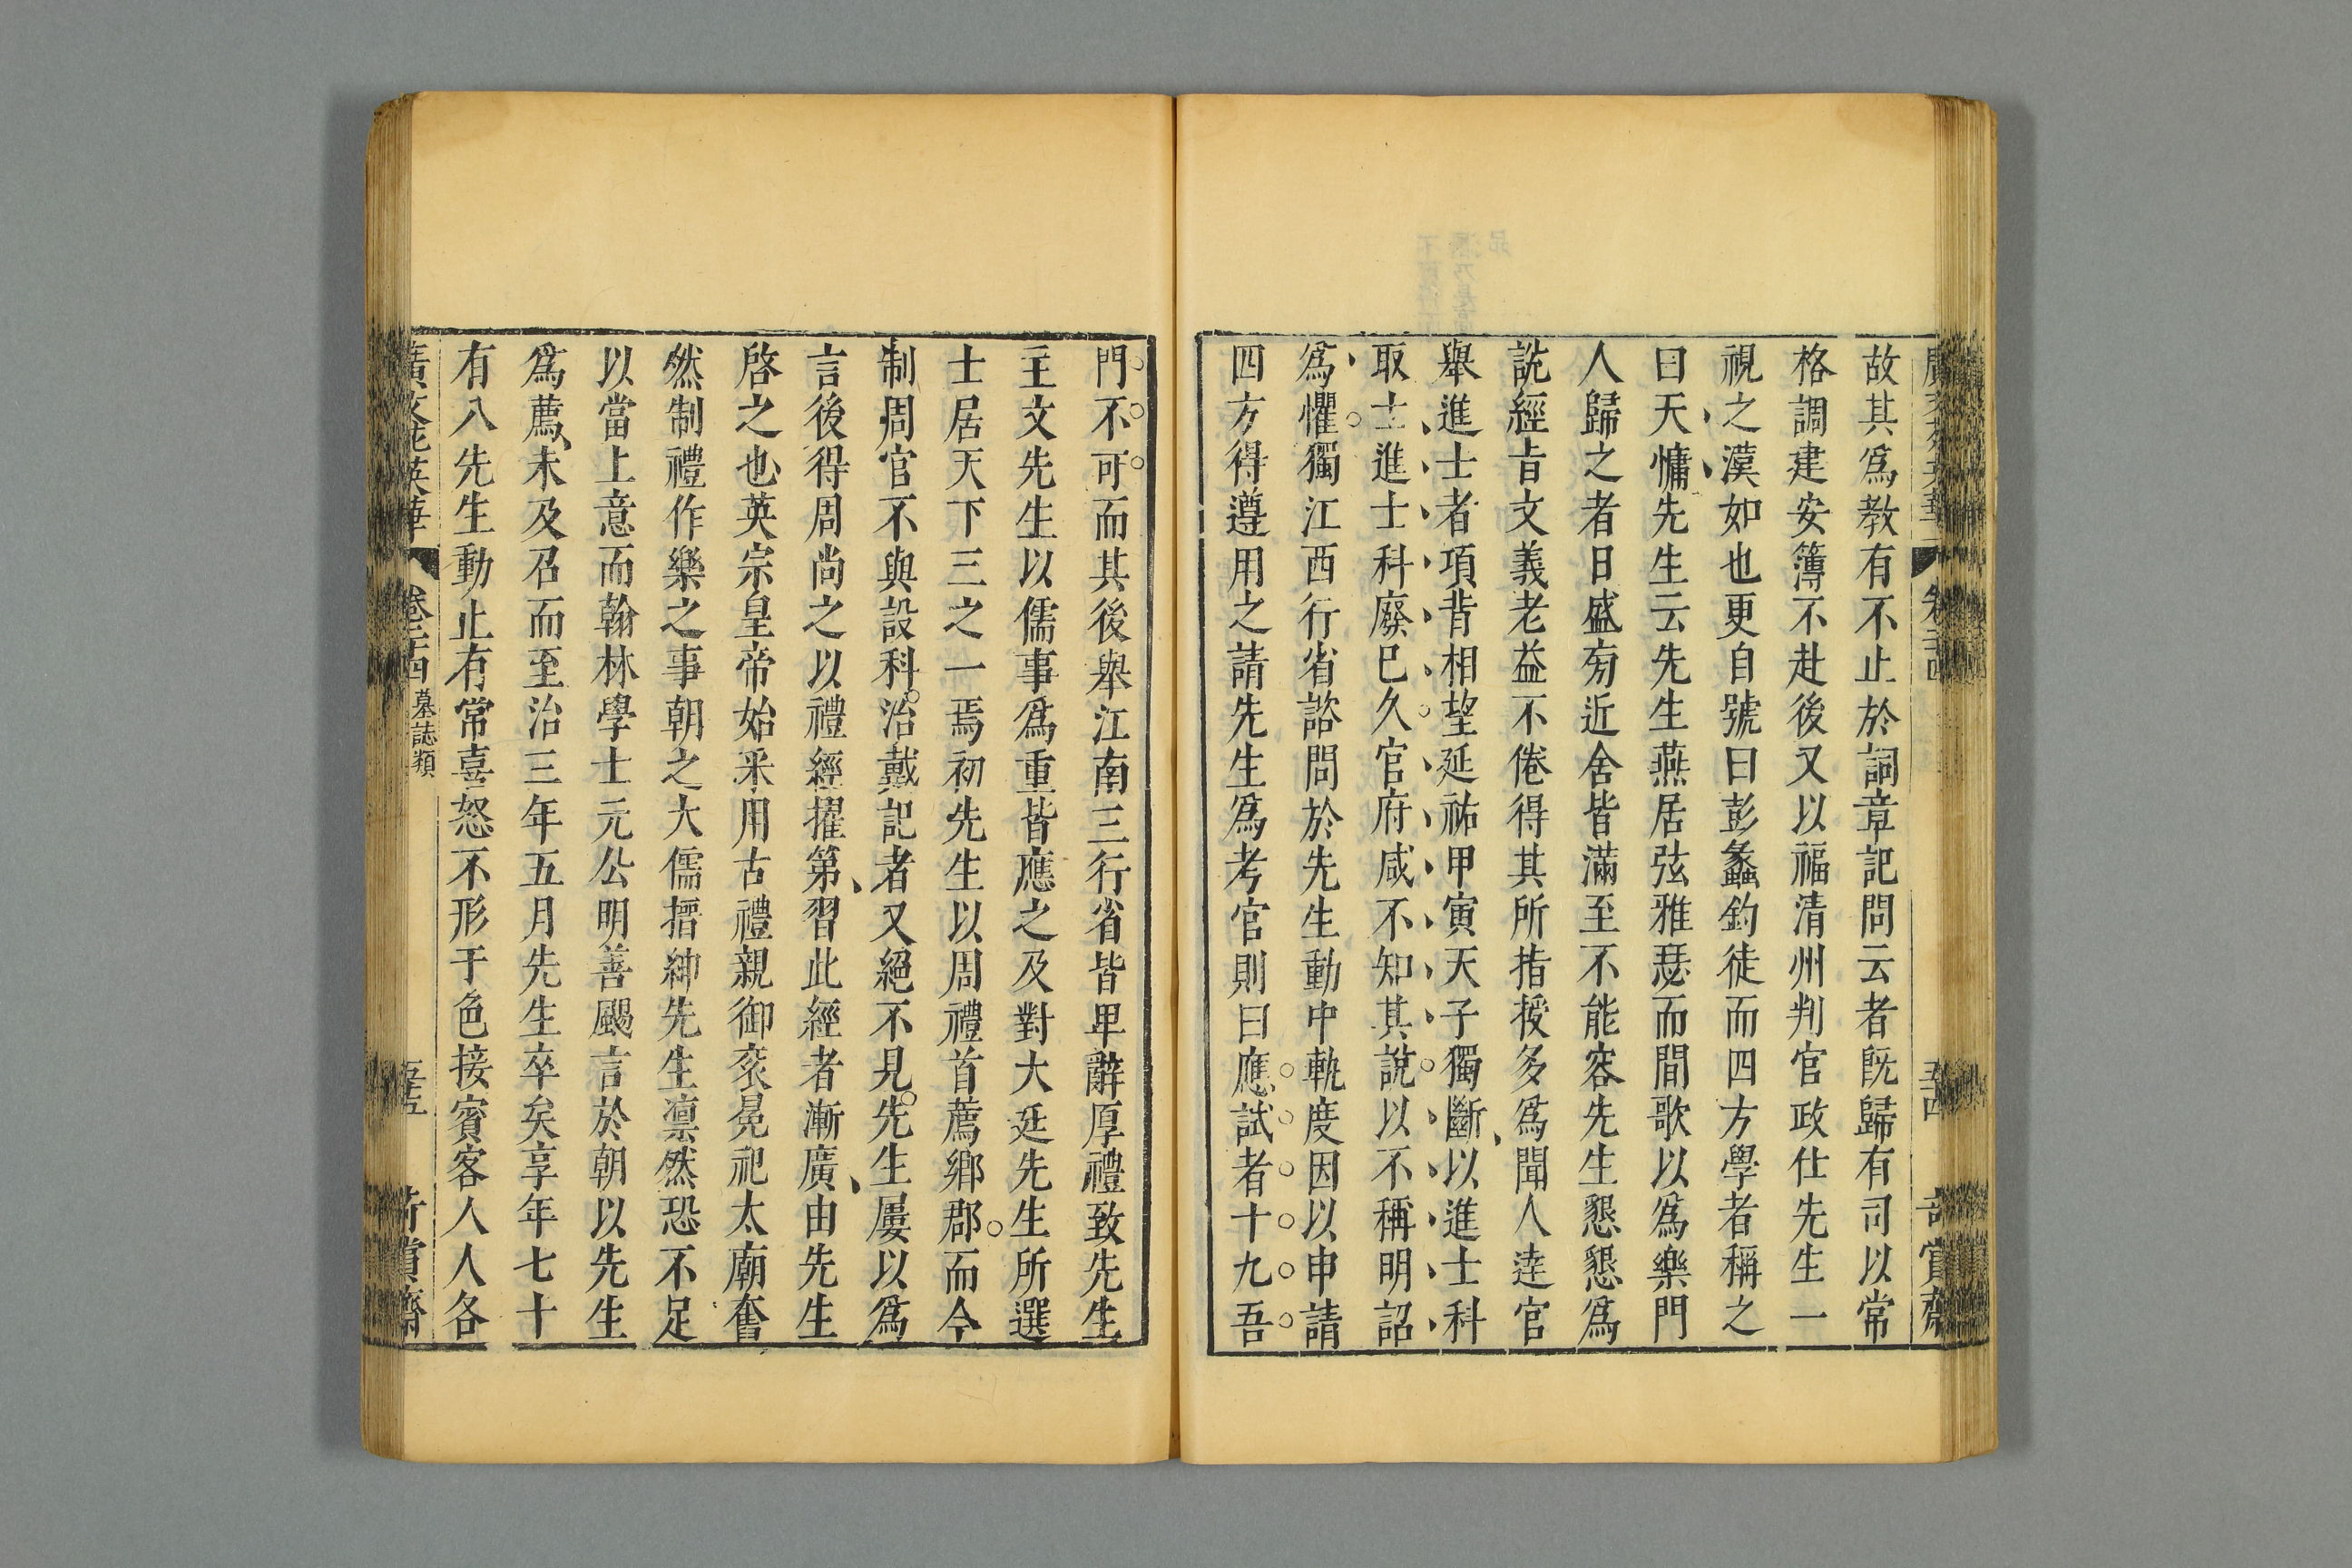 故其爲教有不止於詞章記問云者旣歸有司以常
格調建安簿不赴後又以福清州判官政仕先生一
視之漠如也更自號曰彭蠡釣徒而四方學者稱之
曰天慵先生云先生燕居弦雅瑟而間歌以爲樂門
人歸之者日盛旁近舍皆滿至不能容先生懇懇爲
說經旨文義老益不倦得其所指授多爲聞人達官
舉進士者項背相望延祐甲寅天子獨斷以進士科
取士進士科廢已久官府咸不知其說以不稱明詔
爲懼獨江西行省諮問於先生動中軌度因以申請
四方得遵用之請先生爲考官則曰應試者十九吾
門不可而其後舉江南三行省皆卑辭厚禮致先生
主文先生以儒事爲重皆應之及對大廷先生所選
士居天下三之一焉初先生以周禮首薦鄉郡而今
制周官不與設科治戴記者又絕不見先生屢以爲
言後得周尚之以禮經擢第習此經者漸廣由先生
啓之也英宗皇帝始采用古禮親御衮冕祀太廟奮
然制禮作樂之事朝之大儒搢紳先生凛然恐不足
以當上意而翰林學士元公明善颺言於朝以先生
爲薦未及召而至治三年五月先生卒矣享年七十
有八先生動止有常喜怒不形于色接賓客人人各
廣文苑英華 卷二十四 墓誌類